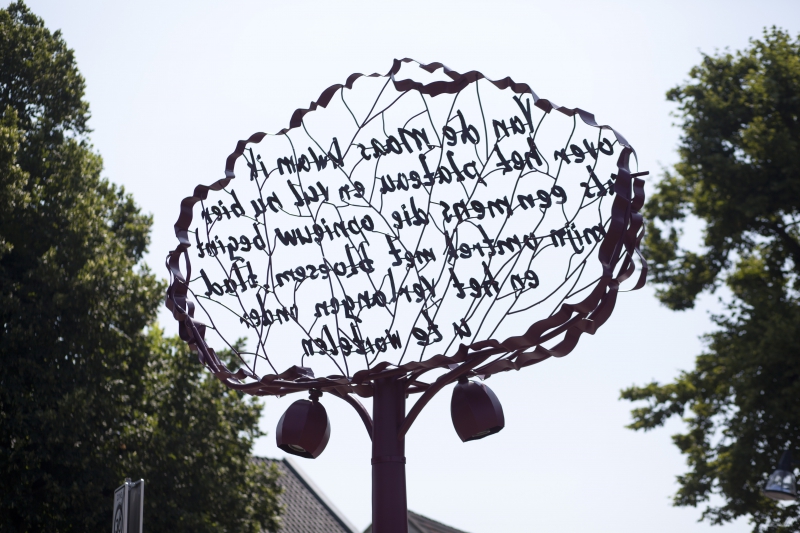 Van de maas kwam ik
over het plateau en vul nu hier
als een mens die opnieuw begint
mijn omtrek met bloesem. Stad
en het verlangen onder
u te wortelen